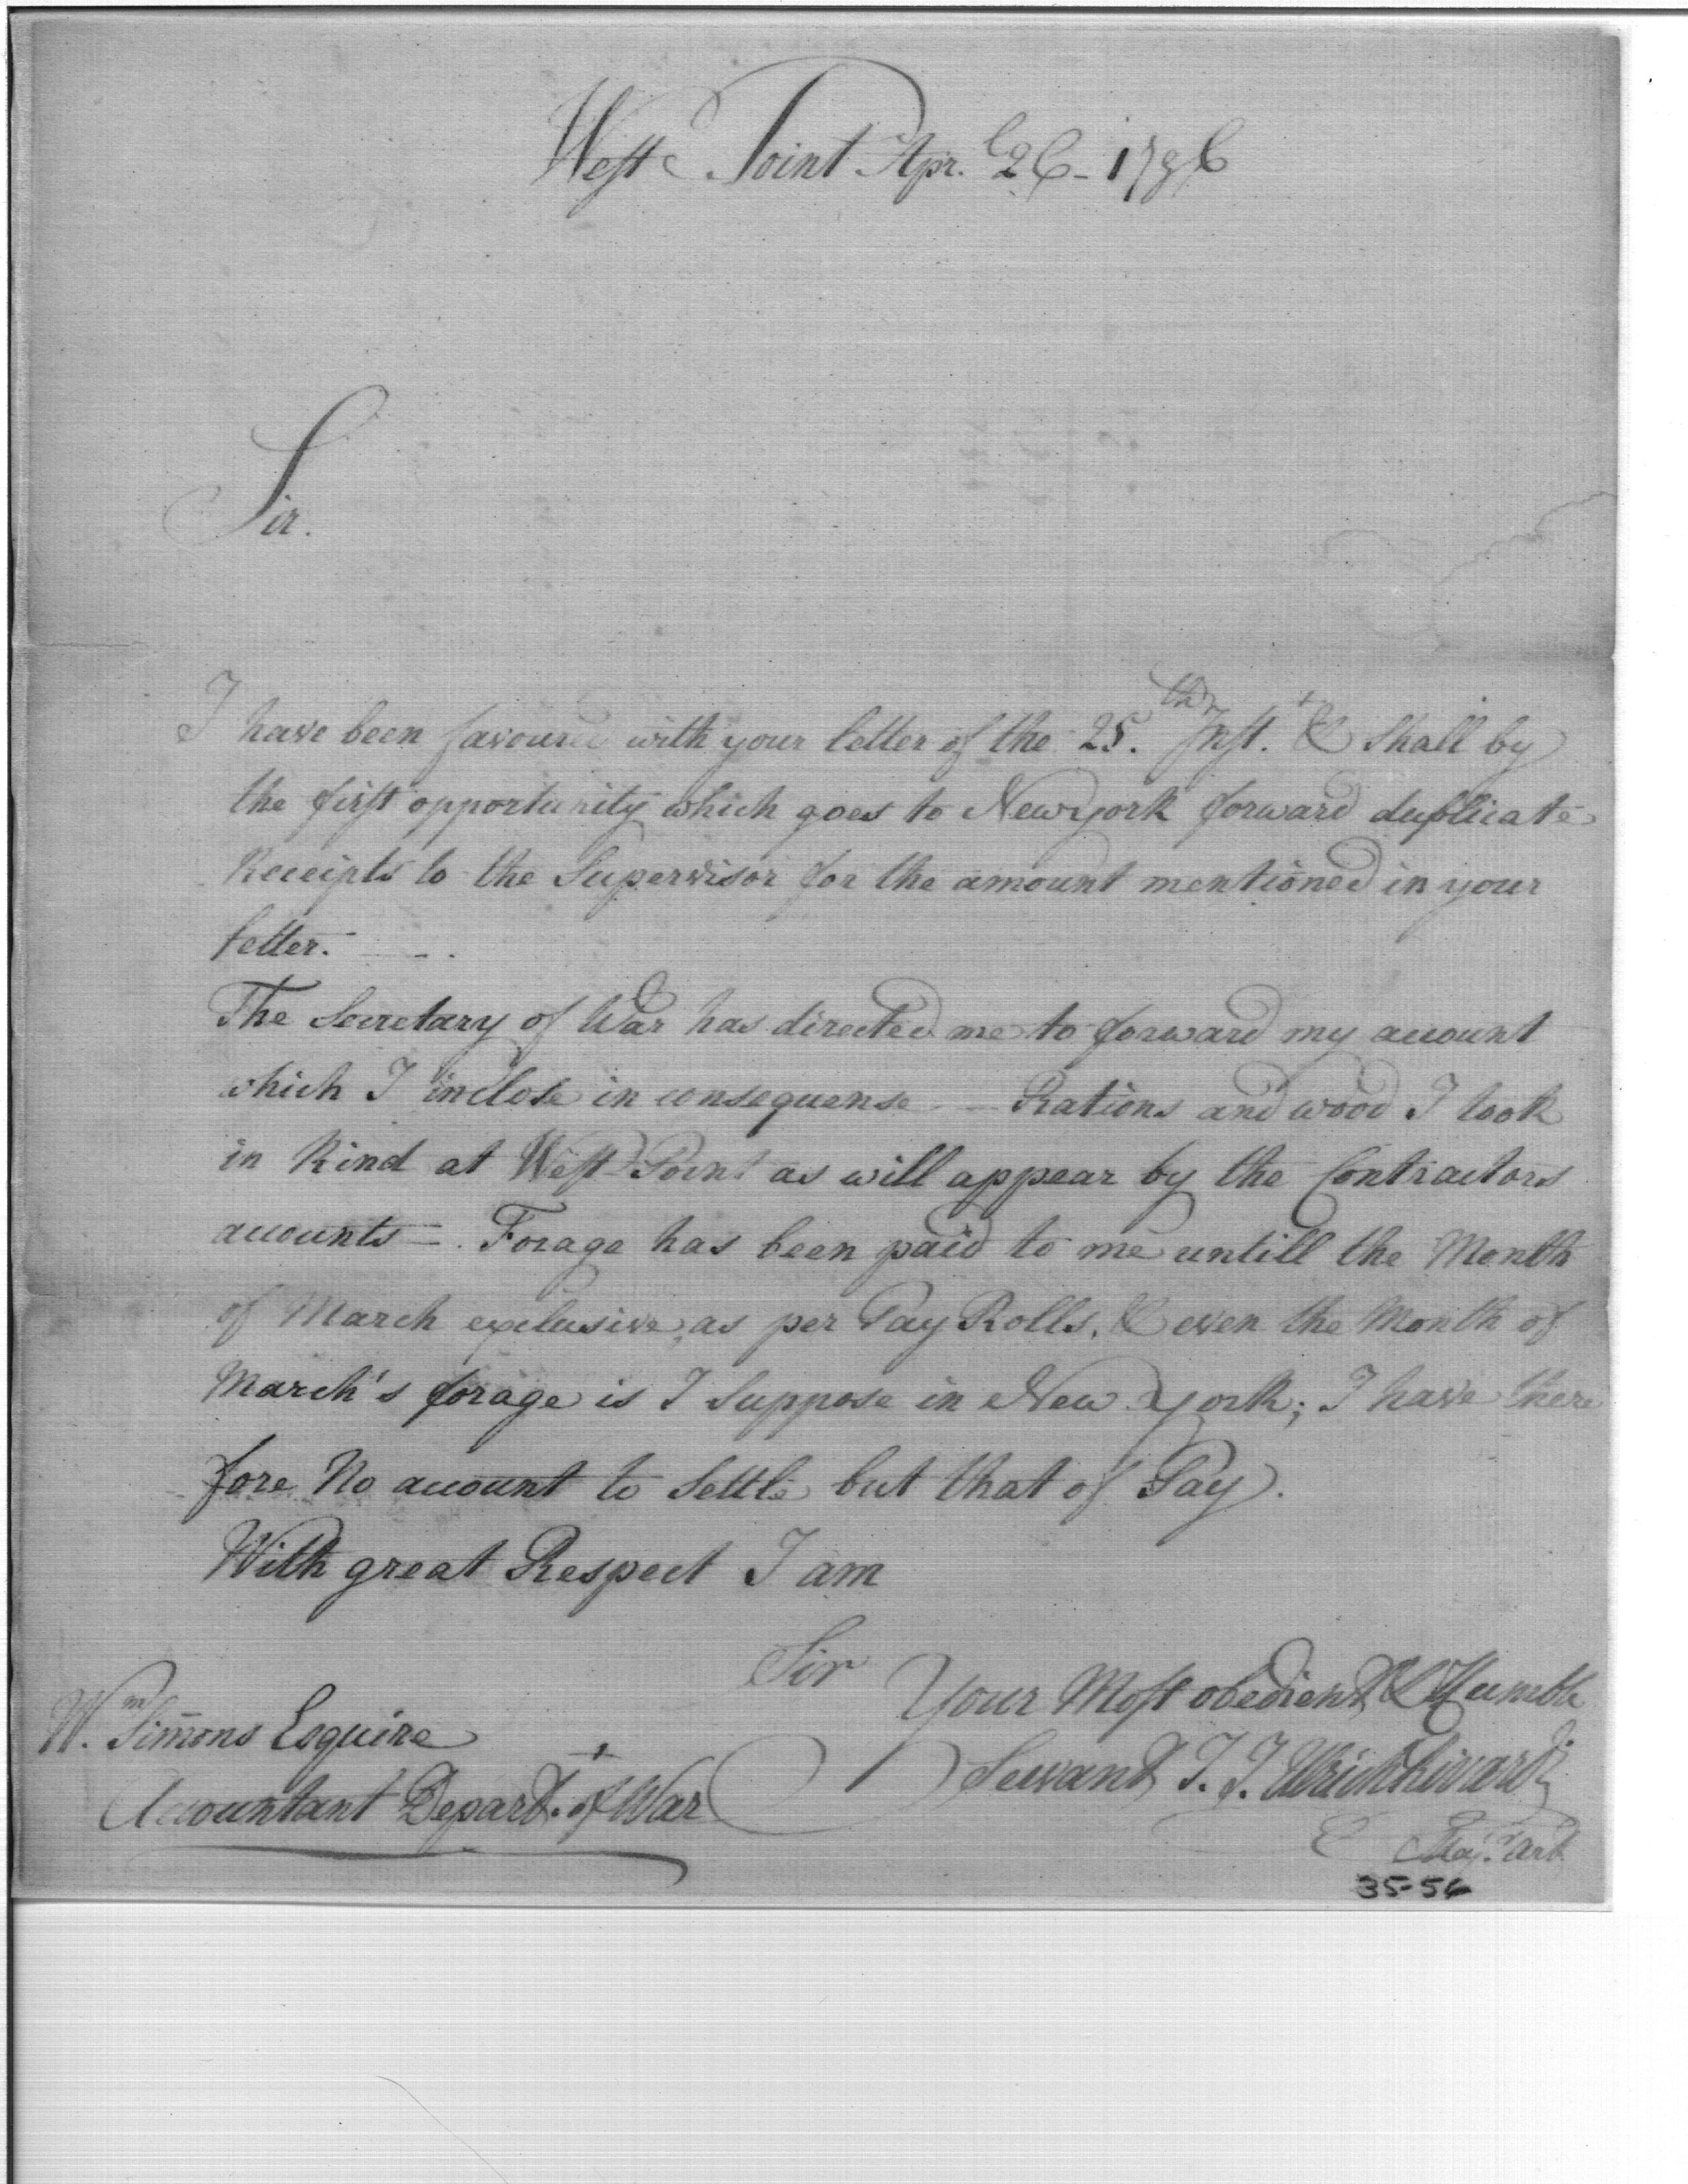 West Point Apr.l 26 - 1796
Sir.
I have been favoured with your letter of the 25.th Inst. & Shall by
the first opportunity which goes to New york forward duplicate
Receipts to the Supervisor for the amount mentioned in your
letter. - - .
The Secretary of War has directed me to forward my account
which I inclose in consequense — Rations and wood I took
in Kind at West Point as will appear by the Contractors
accounts —. Forage has been paid to me untill the Month
of March exclusive, as per Pay Rolls, & even the Month of
March's forage is I Suppose in New York; I have there
fore No account to Settle but that of Pay.
With great Respect I am
Sir
Your Most obedient & Humble
Servant J. J. Ulrich Rivardi
Maj.r art
W.m Simons Esquire
Accountant Depart.t of War
35-56